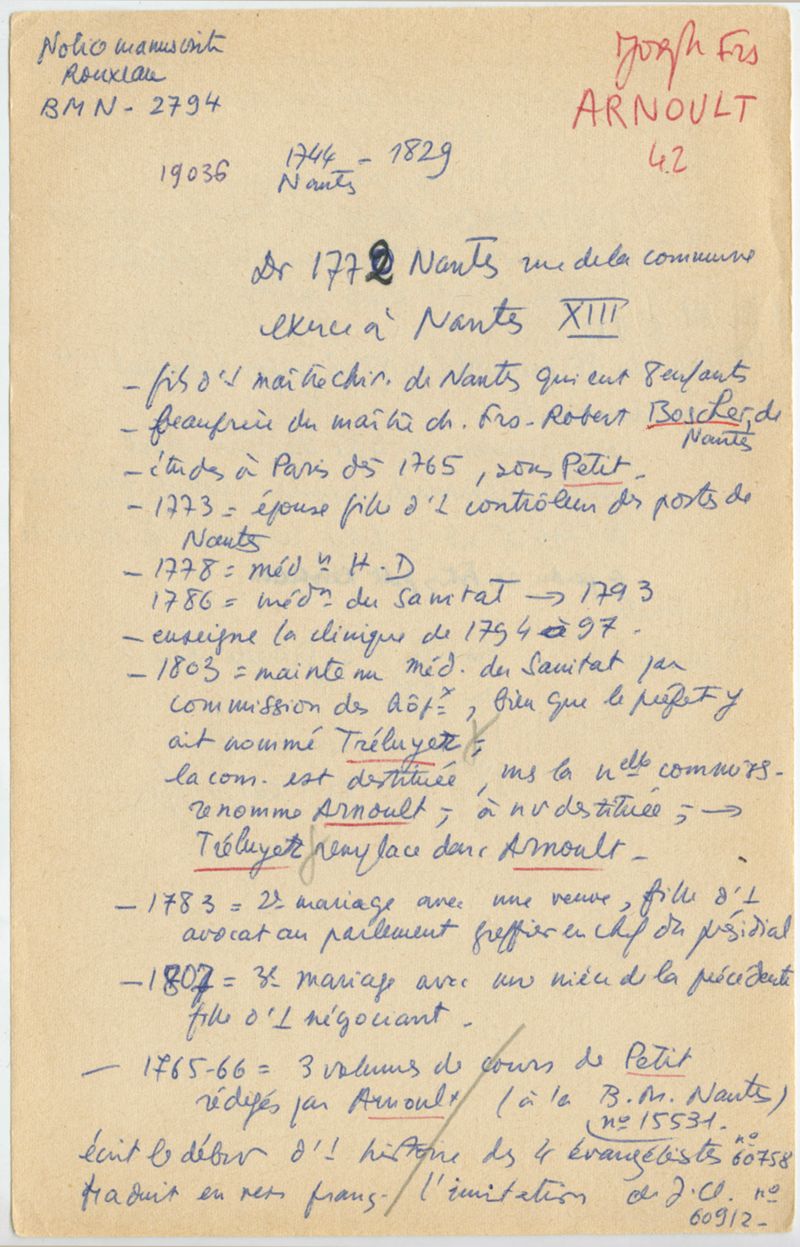 Notice manuscrite
Rouxeau
BMN - 2794
Joseph Frs
ARNOULT
42
19036
1744 - 1829
Nantes
Dr 1772 Nantes rue de la commune
exerce à Nantes XIII
- fils d'1 maître chir. de Nantes qui eut 8 enfants
- beaufrère du maître ch. Frs-Robert Boscher, de
Nantes
- études à Paris dès 1765, sous Petit -
- 1773 = épouse fille d'1 contrôleur des postes de
Nantes
- 1778 = médn H-D
1786 = médn du Sanitat → 1793
- enseigne la clinique de 1794 à 97.
- 1803 = maintenu méd. du Sanitat par
commission des hôpx, bien que le préfet y
ait nommé Tréluyer ;
la com. est destituée, ms la nelle commiss-
renomme Arnoult ; à nv destituée ; →
Tréluyer remplace donc Arnoult -
- 1783 = 2e mariage avec une veuve, fille d'1
avocat au parlement greffier en chef du présidial
- 1807 = 3e mariage avec une nièce de la précédente
fille d'1 négociant -
- 1765-66 = 3 volumes de cours de Petit
rédigés par Arnoult (à la B.M. Nantes)
no 15531.
écrit le début d'1 histoire des 4 évangélistes no 60758
traduit en vers franç. l'imitation de J.C. no
60912-